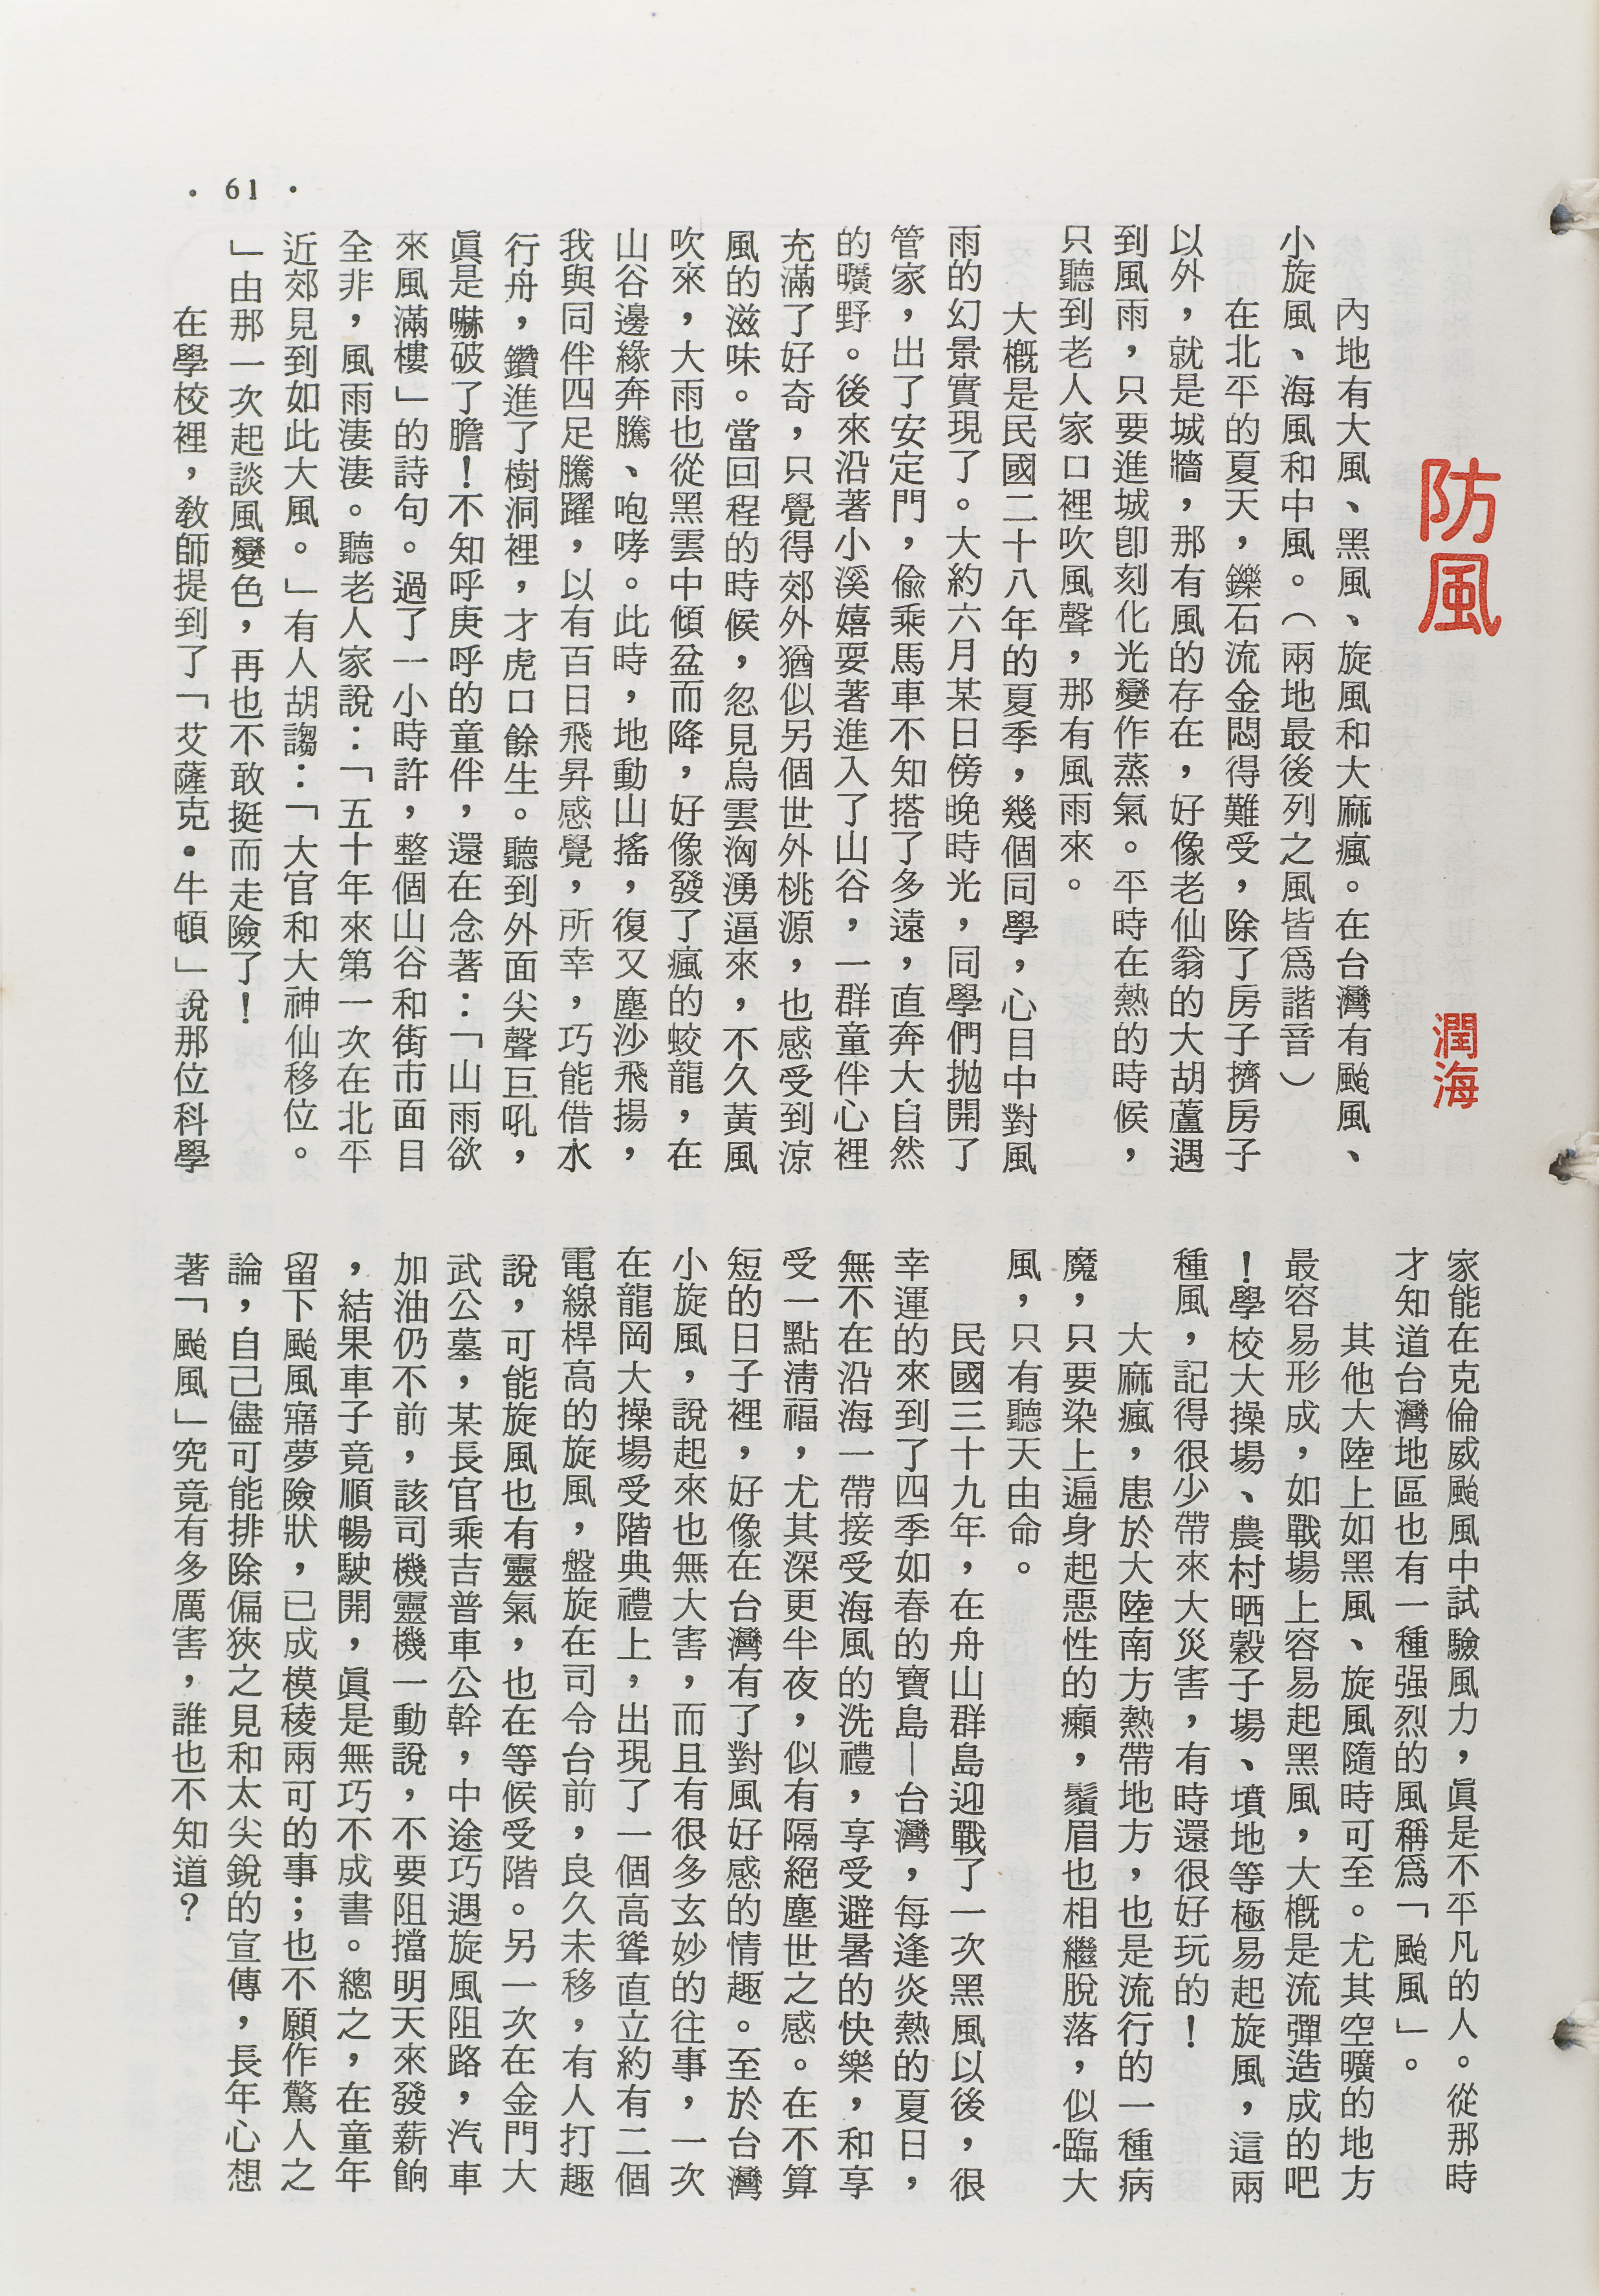 防風
潤海
內地有大風、黑風、旋風和大麻瘋。在台灣有颱風、
小旋風、海風和中風。（兩地最後列之風皆爲諧音）
在北平的夏天，鑠石流金悶得難受，除了房子擠房子
以外，就是城牆，那有風的存在，好像老仙翁的大胡蘆遇
到風雨，只要進城卽刻化光變作蒸氣。平時在熱的時候，
只聽到老人家口裡吹風聲，那有風雨來。
大槪是民國二十八年的夏季，幾個同學，心目中對風
雨的幻景實現了。大約六月某日傍晚時光，同學們拋開了
管家，出了安定門，偷乘馬車不知搭了多遠，直奔大自然
的曠野。後來沿著小溪嬉耍著進入了山谷，一群童伴心裡
充滿了好奇，只覺得郊外猶似另個世外桃源，也感受到涼
風的滋味。當回程的時候，忽見烏雲洶湧逼來，不久黃風
吹來，大雨也從黑雲中傾盆而降，好像發了瘋的蛟龍，在
山谷邊緣奔騰、咆哮。此時，地動山搖，復又塵沙飛揚，
我與同伴四足騰躍，以有百日飛昇感覺，所幸，巧能借水
行舟，鑽進了樹洞裡，才虎口餘生。聽到外面尖聲巨吼，
眞是嚇破了膽！不知呼庚呼的童伴，還在念著：「山雨欲
來風滿樓」的詩句。過了一小時許，整個山谷和街市面目
全非，風雨淒淒。聽老人家說：「五十年來第一次在北平
近郊見到如此大風。」有人胡謅：「大官和大神仙移位。
」由那一次起談風變色，再也不敢挺而走險了！
在學校裡，敎師提到了「艾薩克•牛頓」說那位科學
家能在克倫威颱風中試驗風力，眞是不平凡的人。從那時
才知道台灣地區也有一種强烈的風稱爲「颱風」。
其他大陸上如黑風、旋風隨時可至。尤其空曠的地方
最容易形成，如戰場上容易起黑風，大槪是流彈造成的吧
！學校大操場、農村晒穀子場、墳地等極易起旋風，這兩
種風，記得很少帶來大災害，有時還很好玩的！
大麻瘋，患於大陸南方熱帶地方，也是流行的一種病
魔，只要染上遍身起惡性的癩，鬚眉也相繼脫落，似臨大
風，只有聽天由命。
民國三十九年，在舟山群島迎戰了一次黑風以後，很
幸運的來到了四季如春的寶島—台灣，每逢炎熱的夏日，
無不在沿海一帶接受海風的洗禮，享受避暑的快樂，和享
受一點淸福，尤其深更半夜，似有隔絕塵世之感。在不算
短的日子裡，好像在台灣有了對風好感的情趣。至於台灣
小旋風，說起來也無大害，而且有很多玄妙的往事，一次
在龍岡大操場受階典禮上，出現了一個高聳直立約有二個
電線桿高的旋風，盤旋在司令台前，良久未移，有人打趣
說，可能旋風也有靈氣，也在等候受階。另一次在金門大
武公墓，某長官乘吉普車公幹，中途巧遇旋風阻路，汽車
加油仍不前，該司機靈機一動說，不要阻擋明天來發薪餉
，結果車子竟順暢駛開，眞是無巧不成書。總之，在童年
留下颱風寤夢險狀，已成模稜兩可的事；也不願作驚人之
論，自己儘可能排除偏狹之見和太尖銳的宣傳，長年心想
著「颱風」究竟有多厲害，誰也不知道？
• 61 •